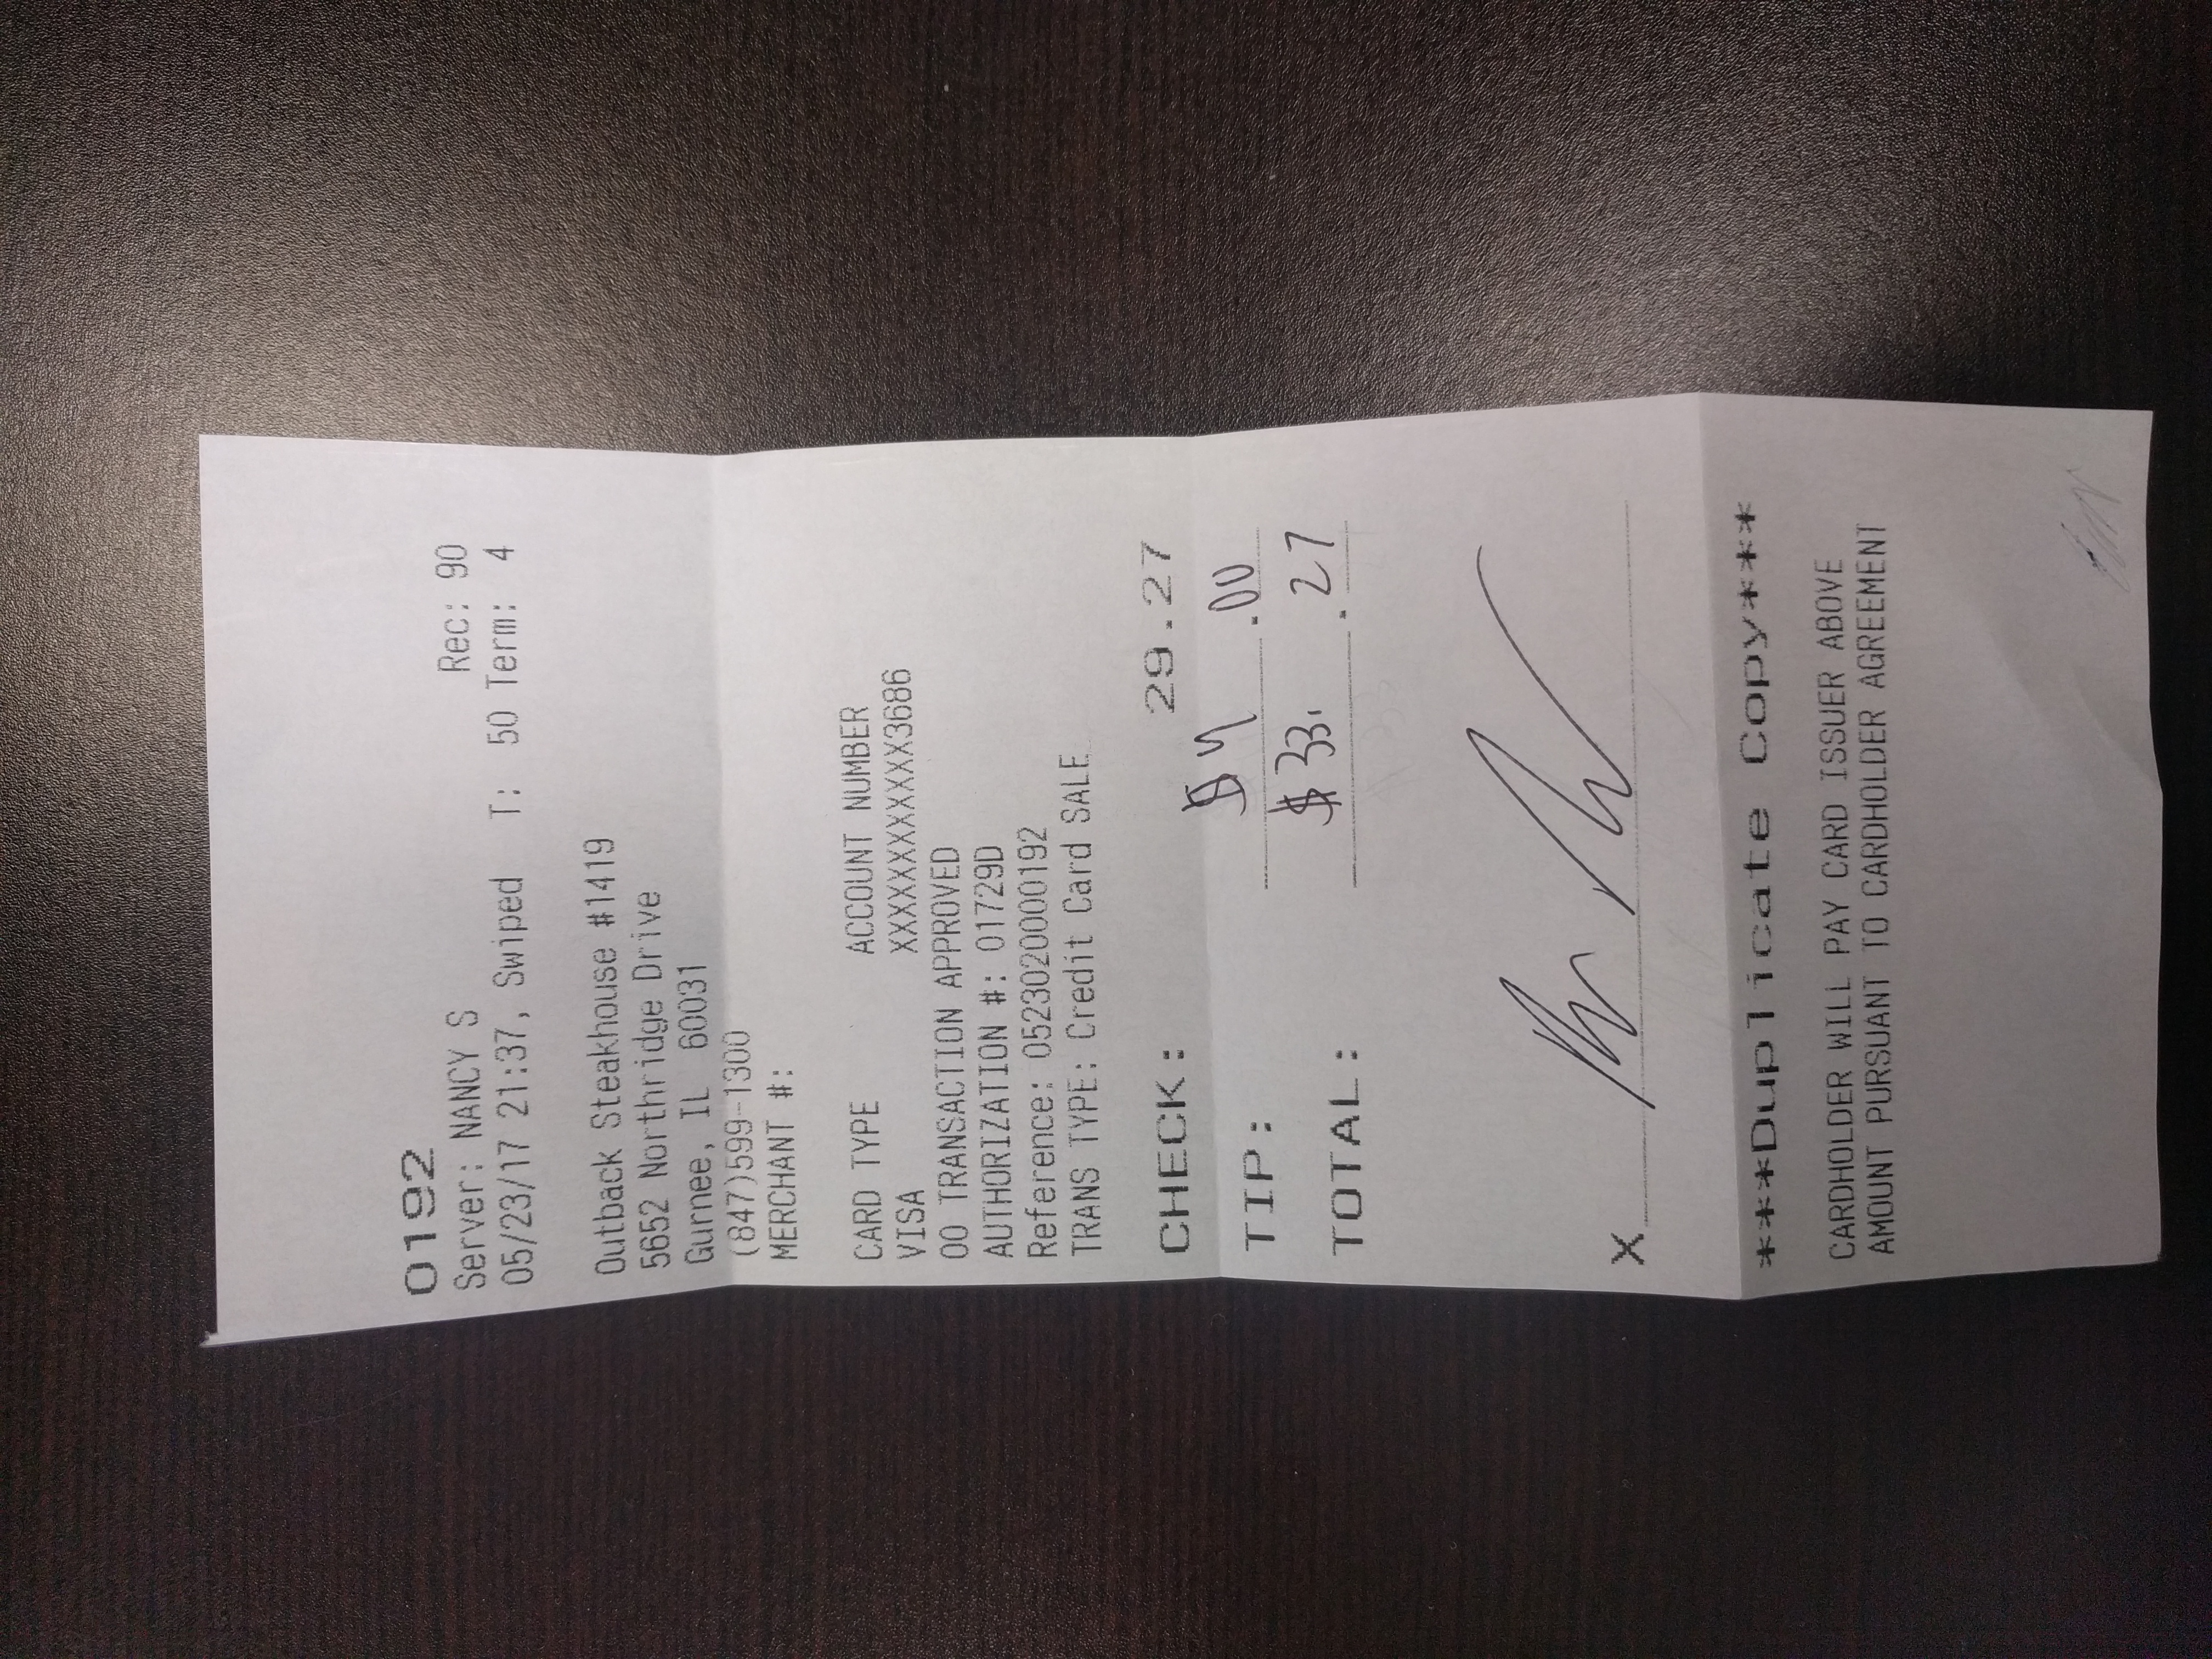 0192
Server: NANCY S Rec: 90
05/23/17 21:37, Swiped T: 50 Term: 4
Outback Steakhouse #1419
5652 Northridge Drive
Gurnee, IL 60031
(847)599-1300
MERCHANT #:
CARD TYPE ACCOUNT NUMBER
VISA XXXXXXXXXXXX3686
00 TRANSACTION APPROVED
AUTHORIZATION #: 01729D
Reference: 0523020000192
TRANS TYPE: Credit Card SALE
CHECK: 29.27
TIP: $4 .00
TOTAL: $33. .27
X
***Duplicate Copy***
CARDHOLDER WILL PAY CARD ISSUER ABOVE
AMOUNT PURSUANT TO CARDHOLDER AGREEMENT